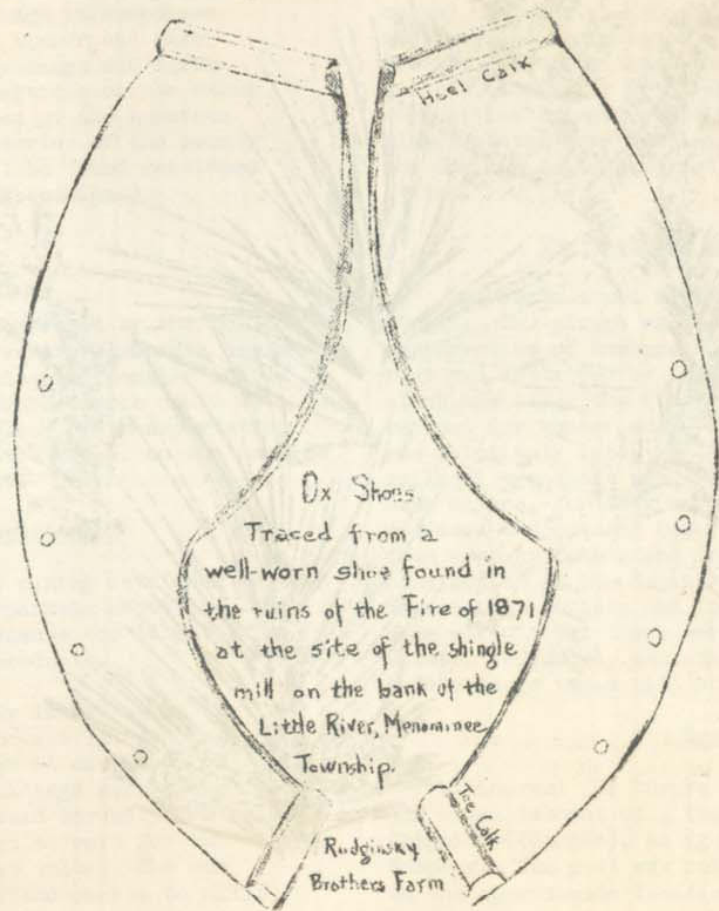 Heel Calk
Ox Shoes
Traced from a
well-worn shoe found in
the ruins of the Fire of 1871
at the site of the shingle
mill on the bank of the
Little River, Menominee
Township.
Toe Calk
Rudginsky
Brothers Farm